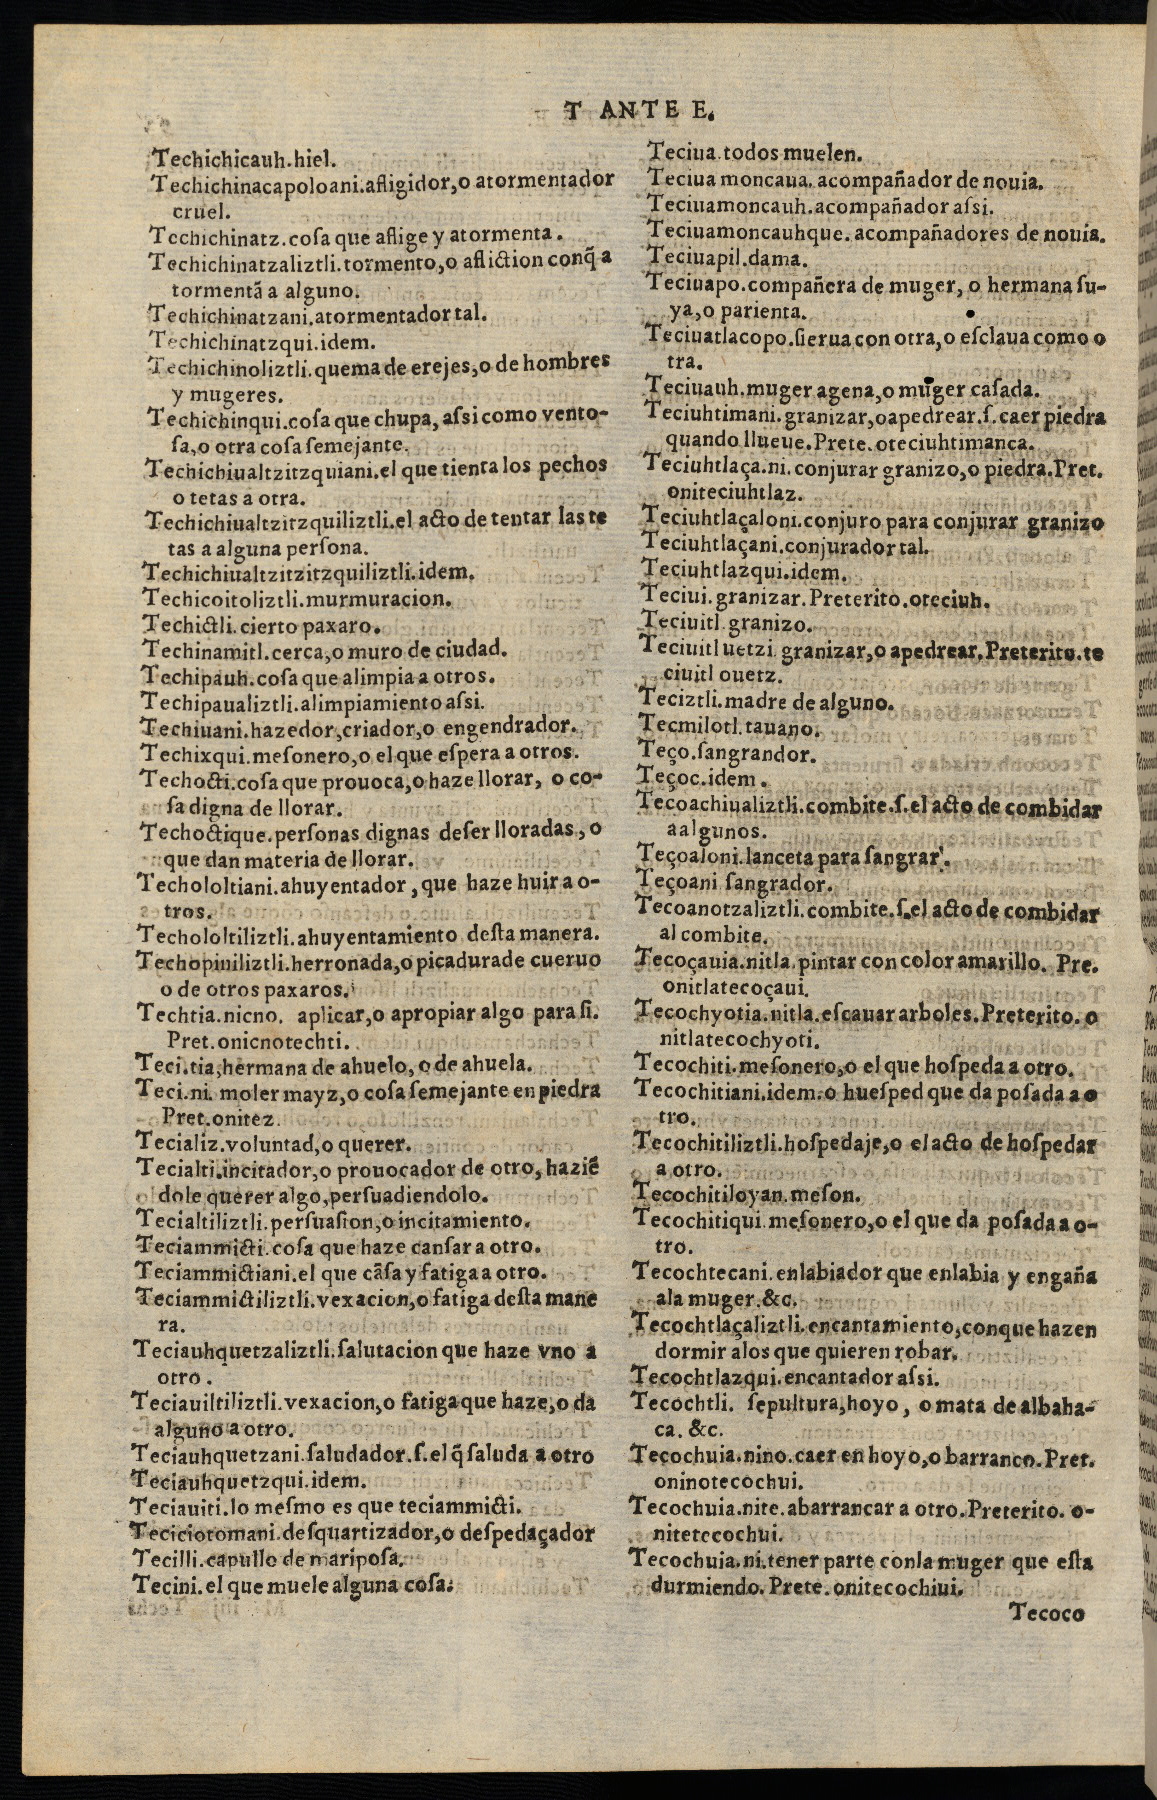 T ANTE E.
Techichicauh.hiel.
Techichinacapoloani.afligidor,o atormentador
cruel.
Techichinatz.coſa que aflige y atormenta.
Techichinatzaliztli.tormento,o afliction conq̃ a
tormentã a alguno.
Techichinatzani.atormentador tal.
Techichinatzqui.idem.
Techichinoliztli.quema de erejes,o de hombres
y mugeres.
Techichinqui.coſa que chupa, aſsi como vento-
ſa,o otra coſa ſemejante.
Techichiualtzitzquiani.el que tienta los pechos
o tetas a otra.
Techichiualtzitzquiliztli.el acto de tentar las te
tas a alguna perſona.
Techichiualtzitzitzquiliztli.idem.
Techicoitoliztli.murmuracion.
Techictli.cierto paxaro.
Techinamitl.cerca,o muro de ciudad.
Techipauh.coſa que alimpia a otros.
Techipaualiztli.alimpiamiento aſsi.
Techiuani.hazedor,criador,o engendrador.
Techixqui.meſonero,o el que eſpera a otros.
Techocti.coſa que prouoca,o haze llorar, o co-
ſa digna de llorar.
Techoctique.perſonas dignas deſer lloradas, o
que dan materia de llorar.
Techololtiani.ahuyentador, que haze huir a o-
tros.
Techololtiliztli.ahuyentamiento deſta manera.
Techopiniliztli.herronada,o picadura de cueruo
o de otros paxaros.
Techtia.nicno. aplicar,o apropiar algo para ſi.
Pret.onicnotechti.
Teci.tia,hermana de ahuelo, o de ahuela.
Teci.ni. moler mayz,o coſa ſemejante en piedra
Pret.onitez.
Tecializ.voluntad,o querer.
Tecialti.incitador,o prouocador de otro, haziẽ
dole querer algo,perſuadiendolo.
Tecialtiliztli.perſuaſion,o incitamiento.
Teciammicti.coſa que haze canſar a otro.
Teciammictiani.el que cãſa y fatiga a otro.
Teciammictiliztli.vexacion,o fatiga deſta mane
ra.
Teciauhquetzaliztli.ſalutacion que haze vno a
otro.
Teciauiltiliztli.vexacion,o fatiga que haze,o da
alguno a otro.
Teciauhquetzani.ſaludador.ſ.el q̃ ſaluda a otro
Teciauhquetzqui.idem.
Teciauiti.lo meſmo es que teciammicti.
Teciciotomani.deſquartizador,o deſpedaçador
Tecilli.capullo de maripoſa.
Tecini.el que muele alguna coſa.
Teciua.todos muelen.
Teciua moncaua.acompañador de nouia.
Teciuamoncauh.acompañador aſsi.
Teciuamoncauhque.acompañadores de nouia.
Teciuapil.dama.
Teciuapo.compañera de muger, o hermana ſu-
ya,o parienta.
Teciuatlacopo.ſierua con otra,o eſclaua como o
tra.
Teciuauh.muger agena,o muger caſada.
Teciuhtimani.granizar,oapedrear.ſ.caer piedra
quando llueue.Prete.oteciuhtimanca.
Teciuhtlaça.ni.conjurar granizo,o piedra.Pret.
oniteciuhtlaz.
Teciuhtlaçaloni.conjuro para conjurar granizo
Teciuhtlaçani.conjurador tal.
Teciuhtlazqui.idem.
Teciui.granizar.Preterito.oteciuh.
Teciuitl.granizo.
Teciuitl uetzi.granizar,o apedrear.Preterito.te
ciuitl ouetz.
Teciztli.madre de alguno.
Tecmilotl.tauano.
Teço.ſangrandor.
Teçoc.idem.
Tecoachiualiztli.combite.ſ.el acto de combidar
aalgunos.
Teçoaloni.lanceta para ſangrar.
Teçoani ſangrador.
Tecoanotzaliztli.combite.ſ.el acto de combidar
al combite.
Tecoçauia.nitla.pintar con color amarillo. Pre.
onitlatecoçaui.
Tecochyotia.nitla.eſcauar arboles.Preterito. o
nitlatecochyoti.
Tecochiti.meſonero,o el que hoſpeda a otro.
Tecochitiani.idem.o hueſped que da poſada a o
tro.
Tecochitiliztli.hoſpedaje,o el acto de hoſpedar
a otro.
Tecochitiloyan.meſon.
Tecochitiqui.meſonero,o el que da poſada a o-
tro.
Tecochtecani.enlabiador que enlabia y engaña
ala muger.&c.
Tecochtlaçaliztli.encantamiento,conque hazen
dormir alos que quieren robar.
Tecochtlazqui.encantador aſsi.
Tecochtli. ſepultura,hoyo, o mata de albaha-
ca. &c.
Tecochuia.nino.caer en hoyo,o barranco.Pret.
oninotecochui.
Tecochuia.nite.abarrancar a otro.Preterito. o-
nitetecochui.
Tecochuia.ni.tener parte conla muger que eſta
durmiendo.Prete.onitecochiui.
Tecoco